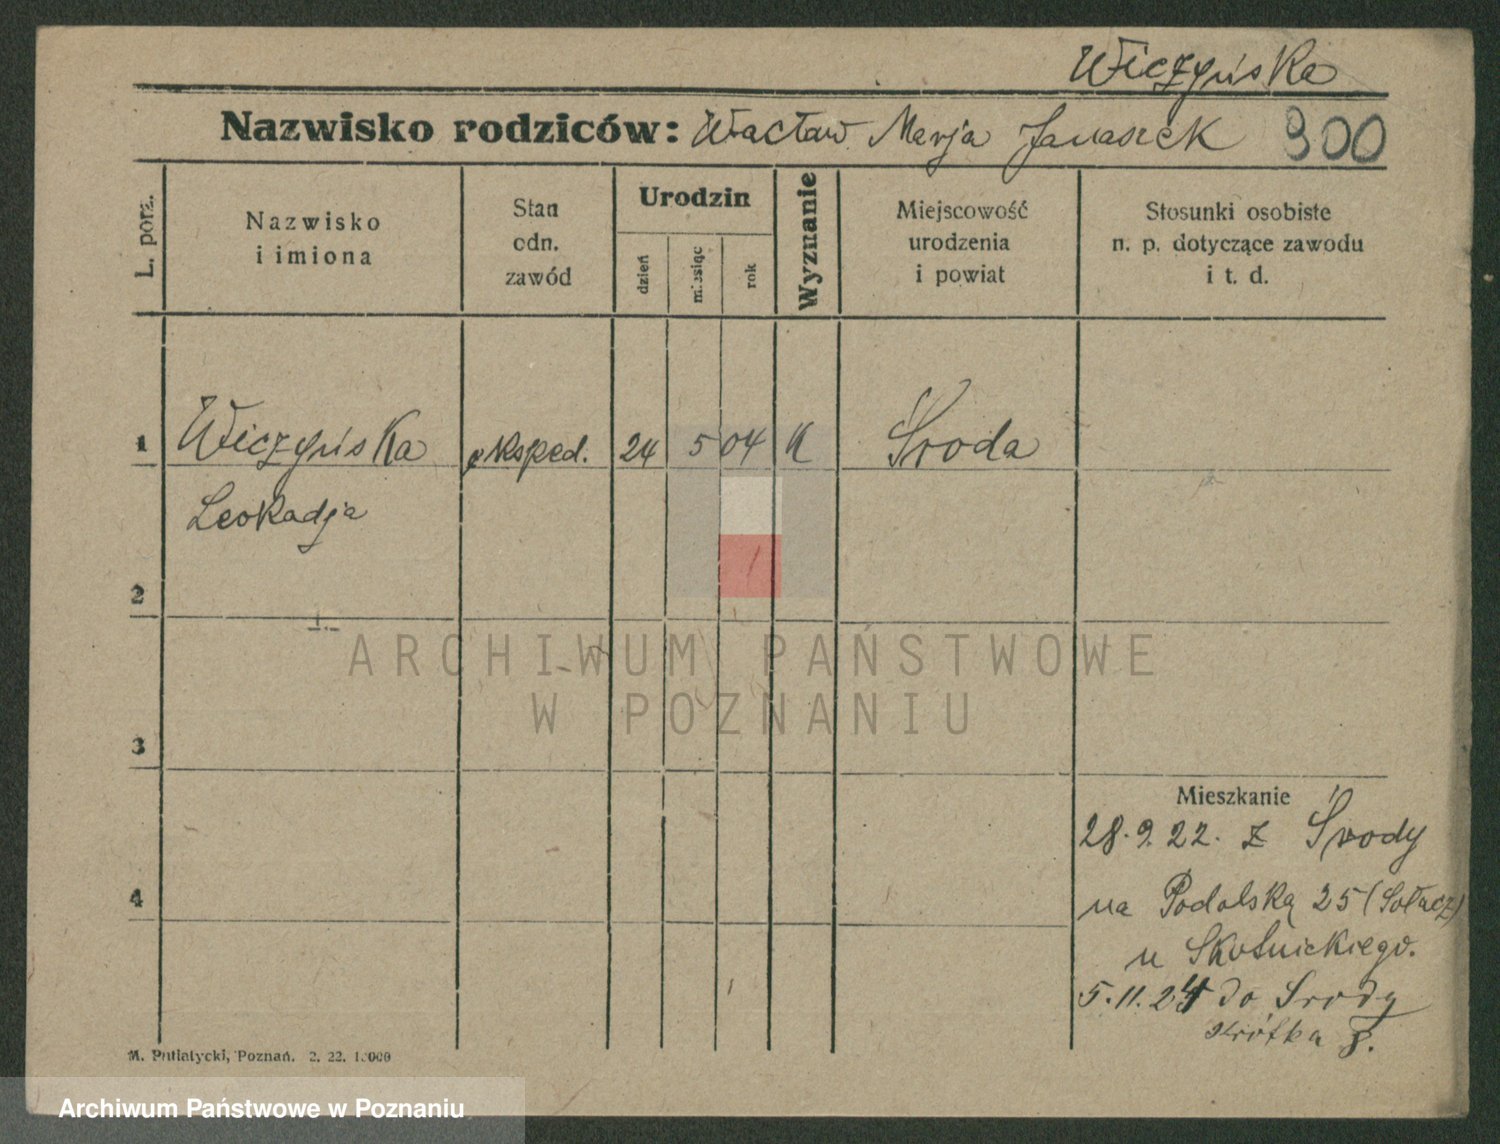 Wiczyńska
Nazwisko rodziców: Wacław Marja Janaszek 900
L. porz.
Nazwisko
i imiona
Stan
odn.
zawód
Urodzin
dzień
miesiąc
rok
Wyznanie
Miejscowość
urodzenia
i powiat
Stosunki osobiste
n. p. dotyczące zawodu
i t. d.
1 Wiczyńska eksped. 24 5 04 K Środa
Leokadja
2
3
4
ARCHIWUM PAŃSTWOWE
W POZNANIU
Mieszkanie
28.9.22. z Środy
na Podolską 25 (Sołacz)
u Skotnickiego.
5.11.24 do Srody
krótka 8.
M. Putiatycki, Poznań. 2. 22.
Archiwum Państwowe w Poznaniu